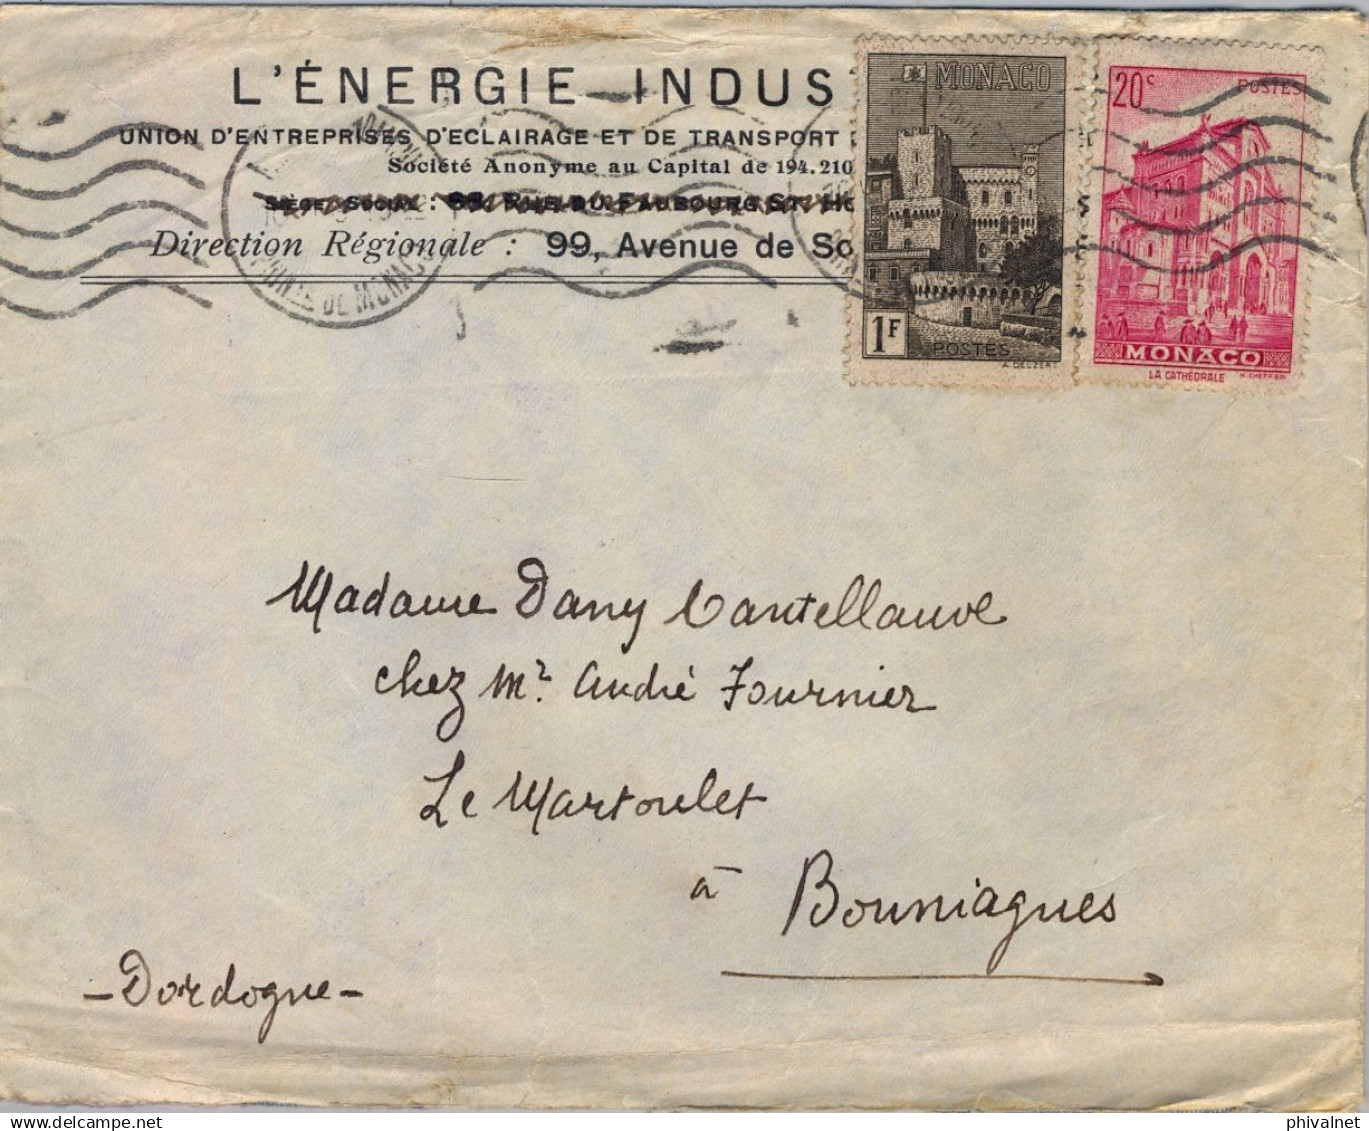 L'ÉNERGIE INDUS
UNION D'ENTREPRISES D'ECLAIRAGE ET DE TRANSPORT
Société Anonyme au Capital de 194.210
SIÈGE SOCIAL : 85 RUE DU FAUBOURG ST. HO
Direction Régionale : 99, Avenue de So
PRINCIPTÉ DE MONACO
MONACO
1F
POSTES
20c POSTES
MONACO
LA CATHÉDRALE
Madame Dany Cantellauve
chez Mr. André Fournier
Le Martoulet
à Bouniagues
- Dordogne -
phivalnet